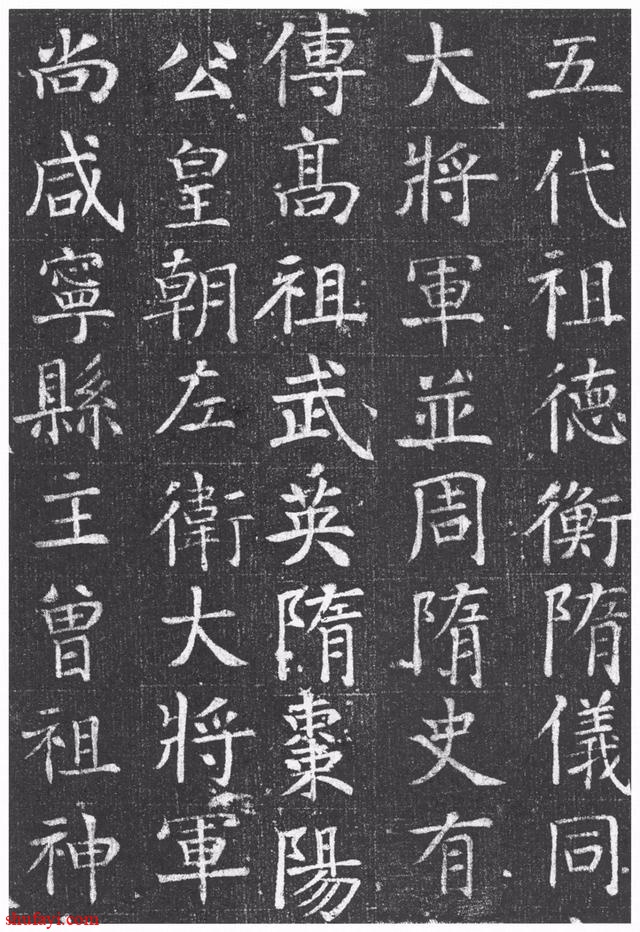 五代祖德衡隋儀同
大將軍並周隋史有
傳高祖武英隋棗陽
公皇朝左衛大將軍
尚咸寧縣主曾祖神
shufayi.com